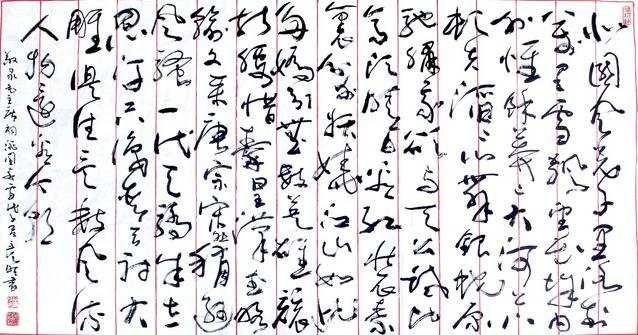 北国风光千里冰封
万里雪飘望长城内
外惟余莽々大河上下
顿失滔々山舞银蛇原
驰蜡象欲与天公试比
高须晴日看红装素
裹分外妖娆江山如此
多娇引无数英雄竞
折腰惜秦皇汉武略
输文采唐宗宋祖稍逊
风骚一代天骄成吉
思汗只识弯弓射大
雕俱往矣数风流
人物还看今朝
敬录毛主席词沁园春雪